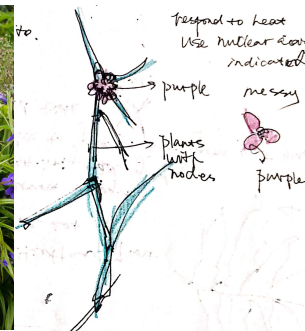 to.
respond to heat
Use nuclear
indicated
purple
messy
plants
with
nodes
purple